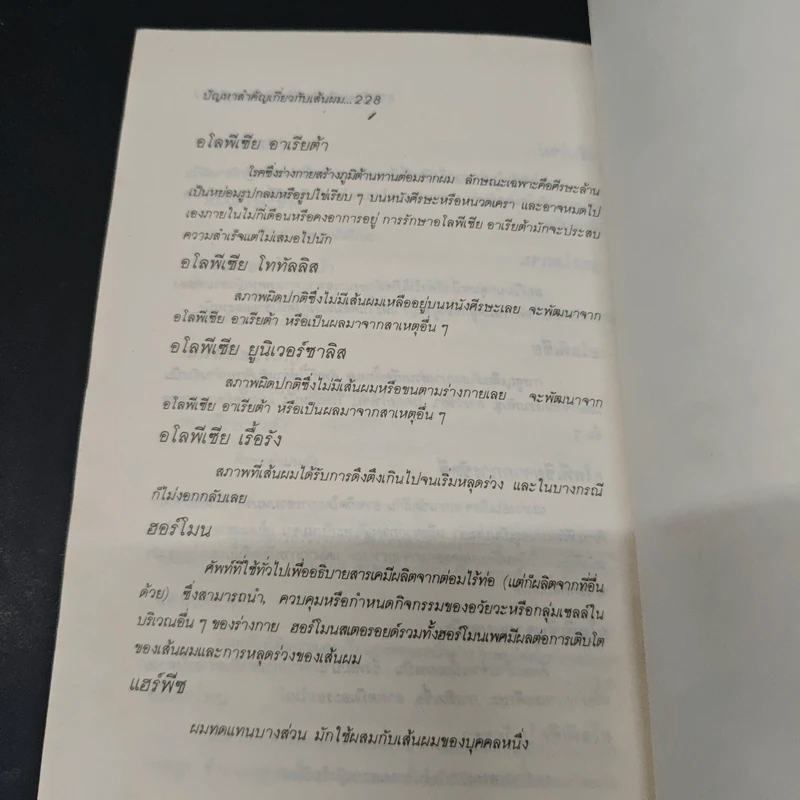 ปัญหาสำคัญเกี่ยวกับเส้นผม...228
อโลพีเซีย อาเรียต้า
โรคซึ่งร่างกายสร้างภูมิต้านทานต่อมรากผม ลักษณะเฉพาะคือศีรษะล้าน
เป็นหย่อมรูปกลมหรือรูปไข่เรียบ ๆ บนหนังศีรษะหรือหนวดเครา และอาจหมดไป
เองภายในไม่กี่เดือนหรือคงอาการอยู่ การรักษาอโลพีเซีย อาเรียต้ามักจะประสบ
ความสำเร็จแต่ไม่เสมอไปนัก
อโลพีเซีย โททัลลิส
สภาพผิดปกติซึ่งไม่มีเส้นผมเหลืออยู่บนหนังศีรษะเลย จะพัฒนาจาก
อโลพีเซีย อาเรียต้า หรือเป็นผลมาจากสาเหตุอื่น ๆ
อโลพีเซีย ยูนิเวอร์ซาลิส
สภาพผิดปกติซึ่งไม่มีเส้นผมหรือขนตามร่างกายเลย จะพัฒนาจาก
อโลพีเซีย อาเรียต้า หรือเป็นผลมาจากสาเหตุอื่น ๆ
อโลพีเซีย เรื้อรัง
สภาพที่เส้นผมได้รับการดึงตึงเกินไปจนเริ่มหลุดร่วง และในบางกรณี
ก็ไม่งอกกลับเลย
ฮอร์โมน
ศัพท์ที่ใช้ทั่วไปเพื่ออธิบายสารเคมีผลิตจากต่อมไร้ท่อ (แต่ก็ผลิตจากที่อื่น
ด้วย) ซึ่งสามารถนำ, ควบคุมหรือกำหนดกิจกรรมของอวัยวะหรือกลุ่มเซลล์ใน
บริเวณอื่น ๆ ของร่างกาย ฮอร์โมนสเตอรอยด์รวมทั้งฮอร์โมนเพศมีผลต่อการเติบโต
ของเส้นผมและการหลุดร่วงของเส้นผม
แฮร์พีซ
ผมทดแทนบางส่วน มักใช้ผสมกับเส้นผมของบุคคลหนึ่ง